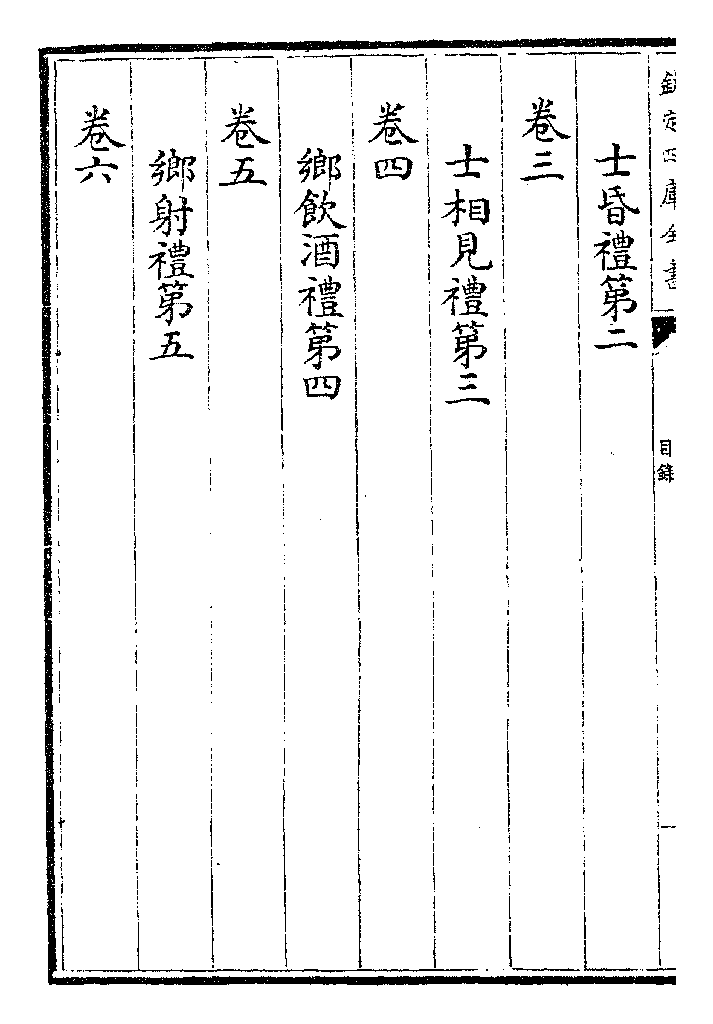 欽定四庫全書
目錄
士昏禮第二
卷三
士相見禮第三
卷四
鄉飲酒禮第四
卷五
鄉射禮第五
卷六